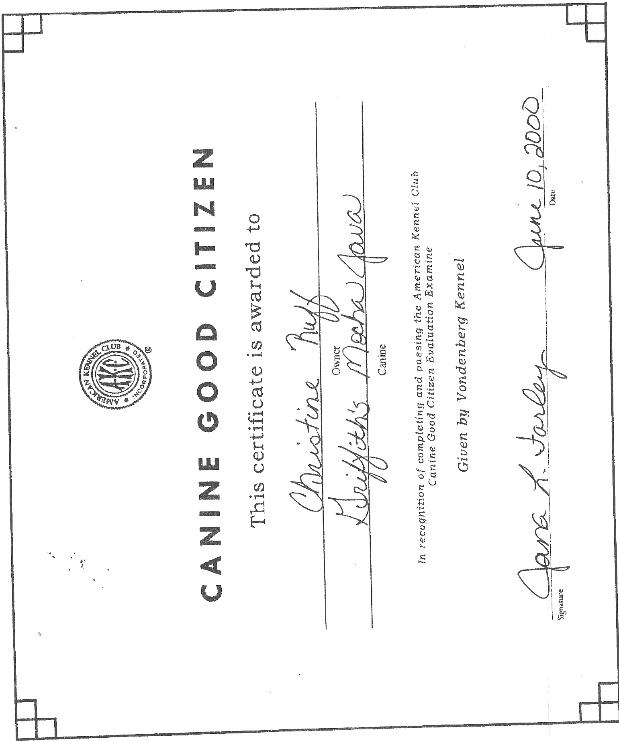 AMERICAN KENNEL CLUB
INCORPORATED
AKC
®
CANINE GOOD CITIZEN
This certificate is awarded to
Christine Nuff
Owner
Griffith's Mocha Java
Canine
In recognition of completing and passing the American Kennel Club
Canine Good Citizen Evaluation Examine
Given by Vondenberg Kennel
Jana L. Farley June 10, 2000
Signature Date